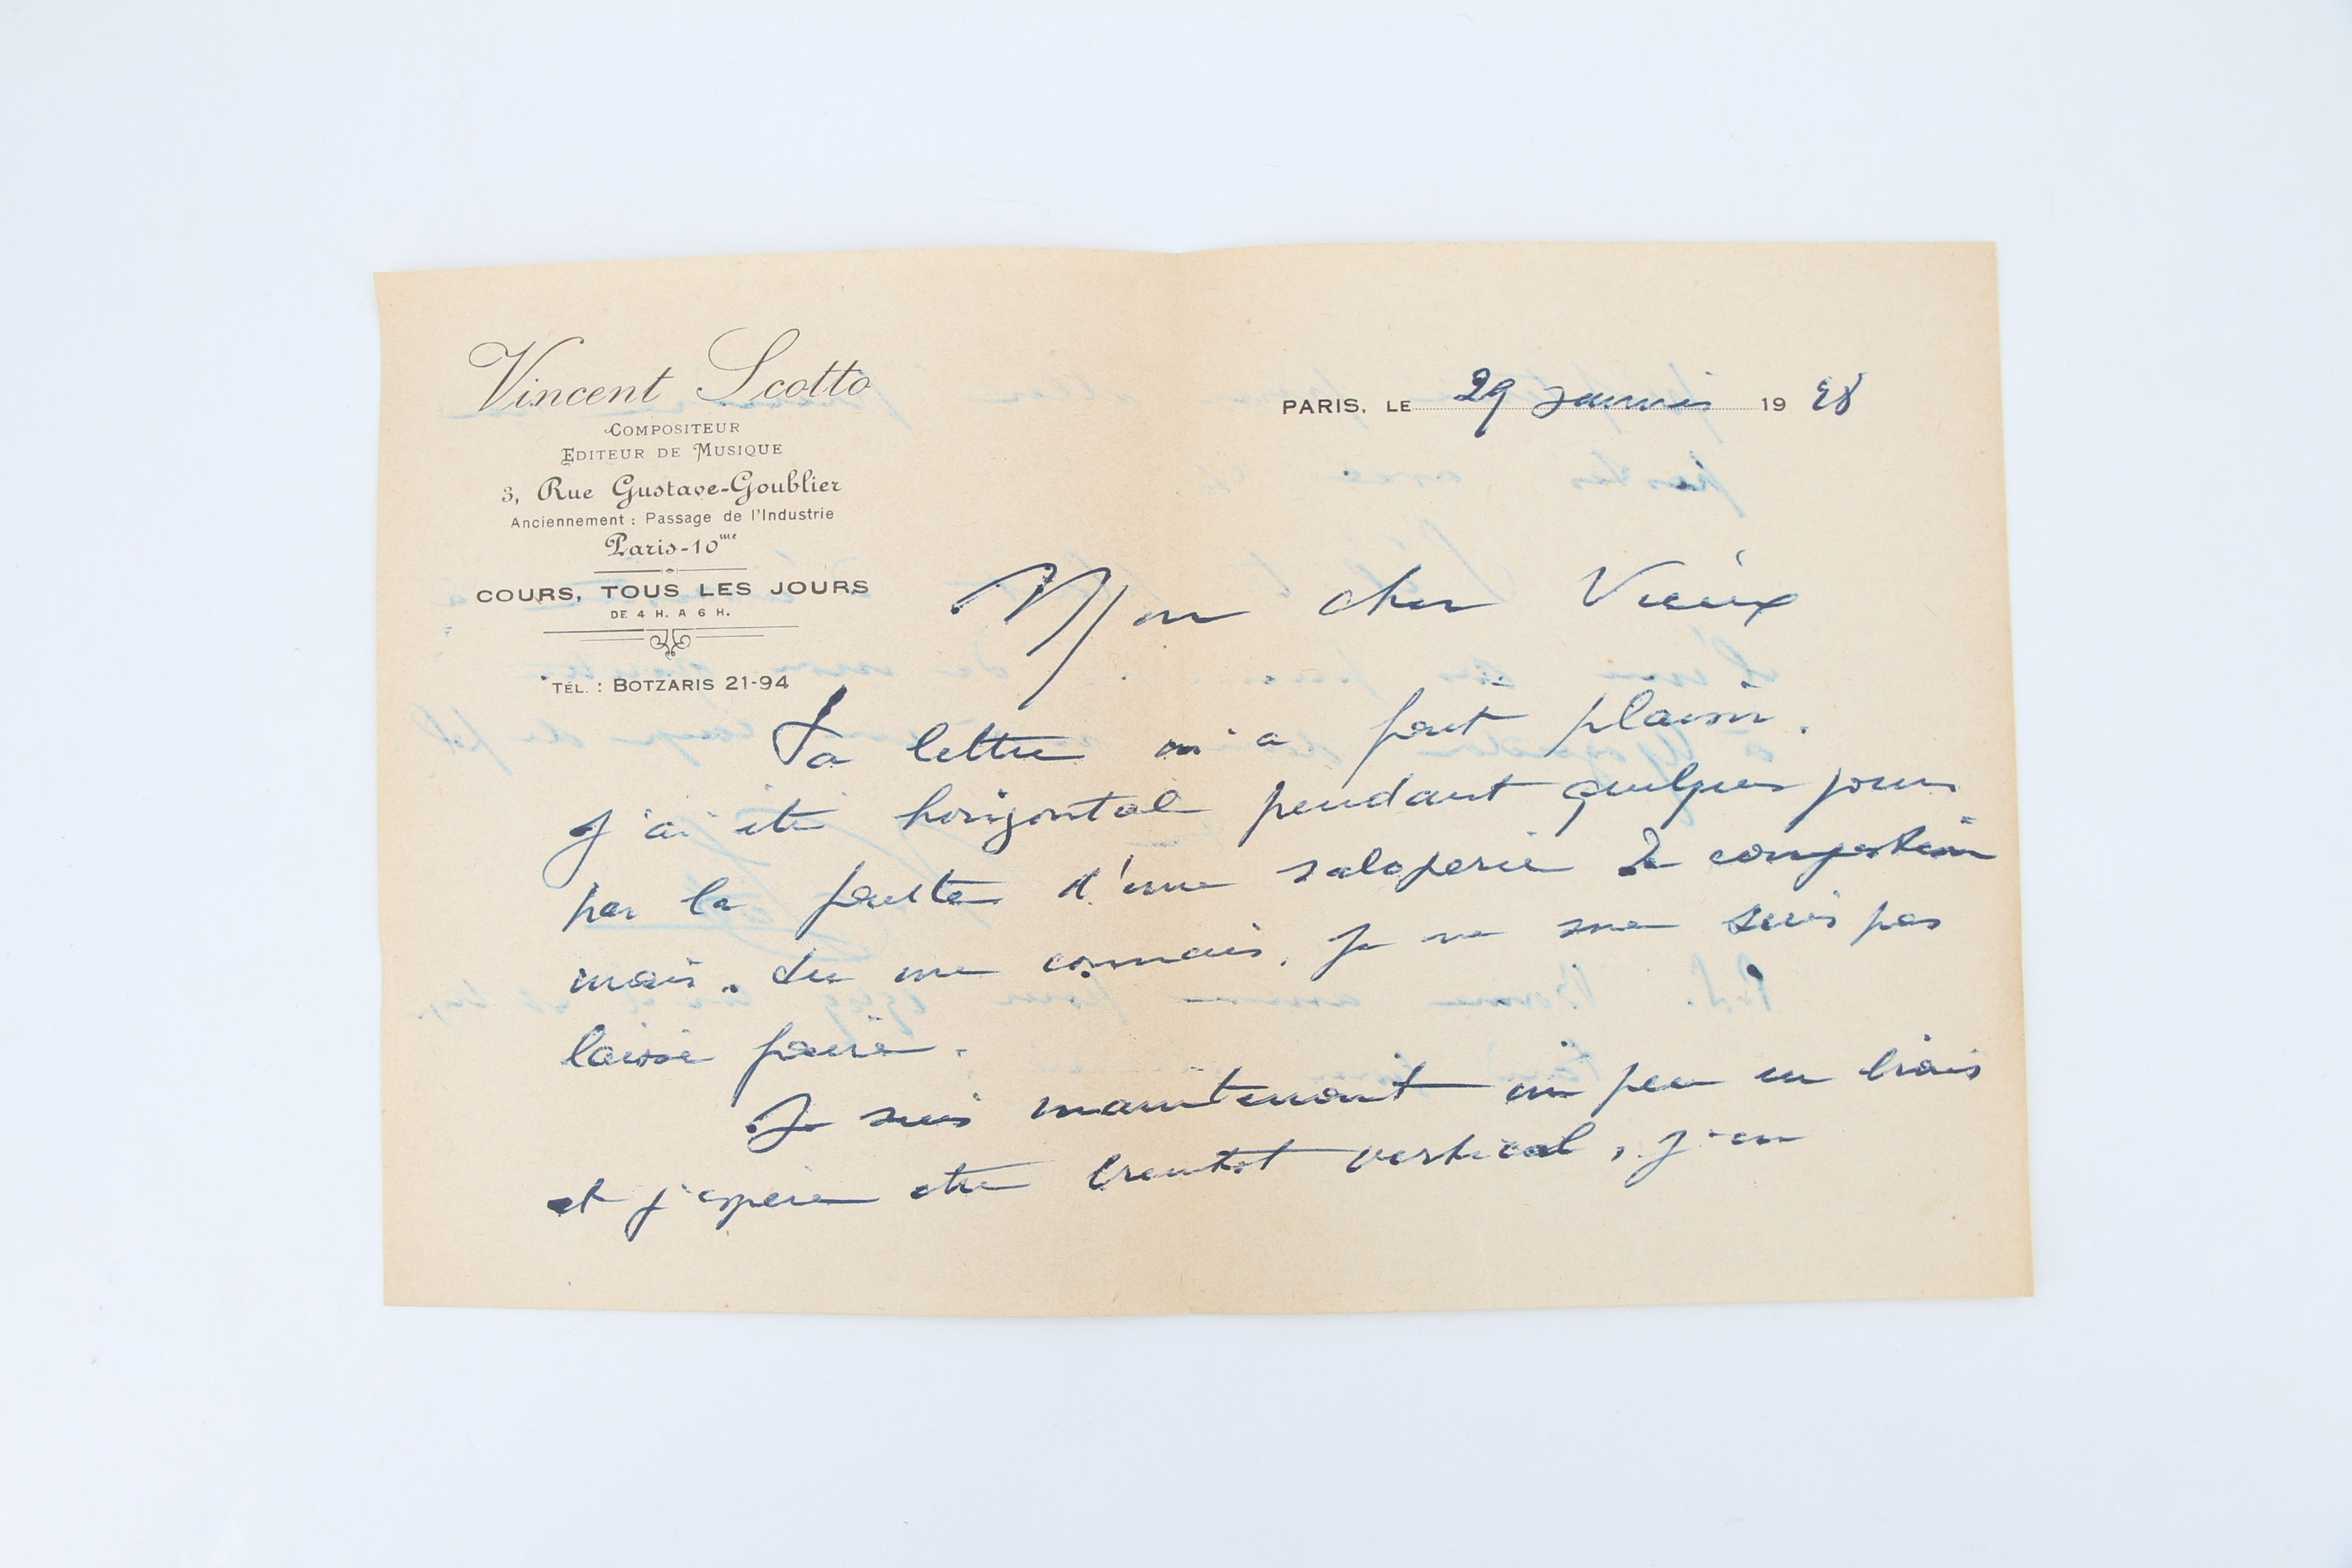 Vincent Scotto
COMPOSITEUR
EDITEUR DE MUSIQUE
3, Rue Gustave-Goublier
Anciennement : Passage de l'Industrie
Paris-10me
COURS, TOUS LES JOURS
DE 4 H. A 6 H.
TÉL. : BOTZARIS 21-94
PARIS, LE 29 Janvier 19 48
Mon cher Vieux
Ta lettre m'a fait plaisir.
J'ai été horizontal pendant quelques jours
par la faute d'une saloperie de congestion
mais, tu me connais, je ne me suis pas
laissé faire.
Je suis maintenant un peu en biais
et j'espère etre bientot vertical, j'en